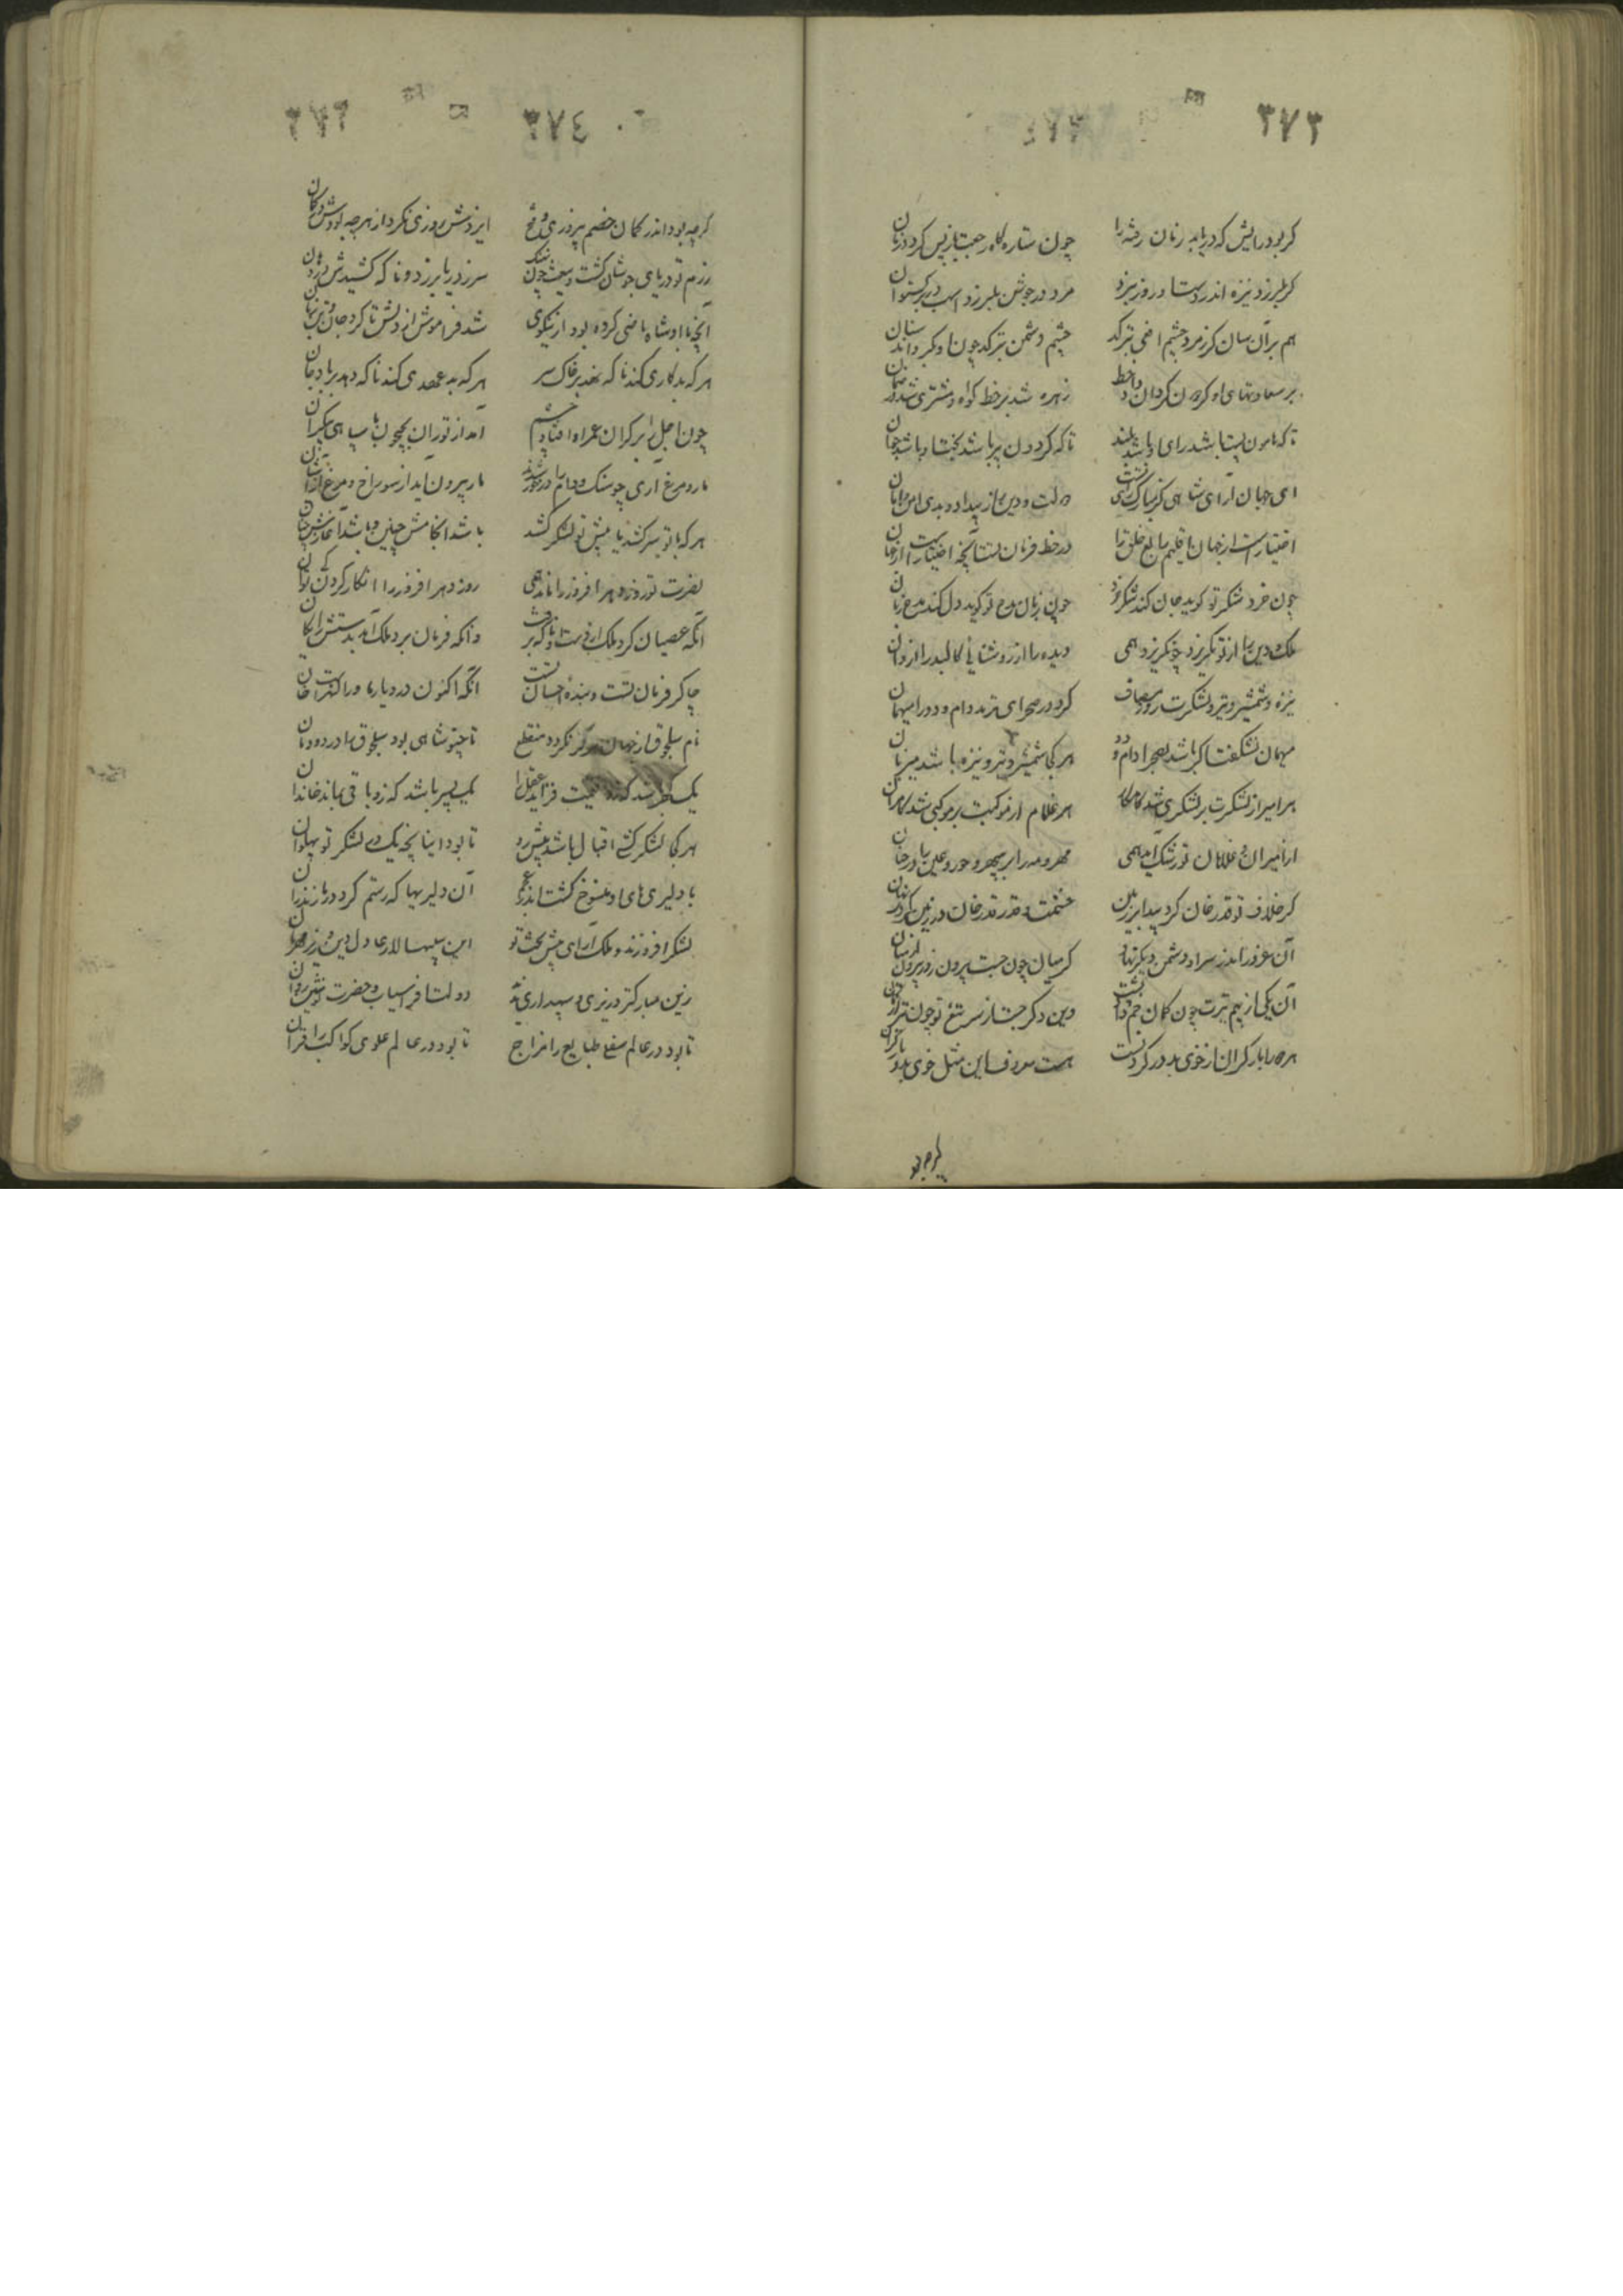 ۳۷۳
گر بود رایش که دریابد زمان رفته را چون ستاره گاه رجعت بازپس گردد زمان
گر بلرزد نیزه اندر دست او روز نبرد مرد در جوشن بلرزد اسب در برگستوان
هم بر آن سان کز زمرد چشم افعی بترکد چشم دشمن بترکد چون او بگرداند سنان
بر سعادتهای او گردون گردان داد خط زهره شد بر خط گواه و مشتری شد
تا که هامون پست باشد رای او باشد بلند تا که گردون پیر باشد بخت او باشد جوان
ای جهان آرای شاهی کز مبارک رای تست دولت و دین را ز بیداد و بدی امن و امان
اختیارست از جهان اقلیم رابع خلق را در خط فرمان تست آنچه اختیارست از جهان
چون خرد شکر تو گوید جان کند شکر خرد چون زبان مدح تو گوید دل کند مدح زبان
ملک و دین را از تو نگریزد چو نگریزد همی دیده را از روشنایی کالبد را از روان
نیزه و شمشیر و تیر و لشکرت روز مصاف کرد در صحرای ترمذ دام و دد را میهمان
میهمان نشکفت اگر باشد بصحرا دام و دد هر کجا شمشیر و تیر و نیزه باشد میزبان
هر امیر از لشکرت بر لشکری شد کامکار هر غلام از موکبت بر موکبی شد کامران
از امیران و غلامان تو رشک آید همی مهر و مه را بر سپهر و حور و عین را در جنان
گر خلاف تو قدرخان کرد پیدا بر زمین حشمتت قدر قدرخان در زمین کردش نهان
آن غرور اندر سر او دشمن دیگر نهاد کز میان چون جست بیرون زود بیرون
آن یکی از بیم تیرت چون کمان خم داد پشت وین دگر جست از سر تیغ تو چون تیر از کمان
هر که را بار گران از خوی بد در گردنست هست معروف این مثل خوی بد و بار گران
گرچه بود
۳۷٤
گرچه بود اندر گمان خصم پیروزی و فتح ایزدش روزی نکرد از هرچه بودش در گمان
رزم تو دریای جوشان گشت و تیغت چون نهنگ سر ز دریا برزد و ناگه کشیدش در دهان
آنچه با او شاه ماضی کرده بود از نیکوی شد فراموش از دلش تا کرد جان
هر که بدکاری کند ناگه نهد بر خاک سر هر که بدعهدی کند ناگه دهد بر باد جان
چون اجل را بر کران عمر راه افتاد چشم آمد از توران بجیحون با سپاهی بیکران
مار و مرغ آری چو سنگ و دام را درخور شوند مار بیرون آید از سوراخ و مرغ از آشیان
هر که با تو سر کشد یا پیش تو لشکر کشد باشد انجامش چنین و باشد آغازش چنان
نصرت تو روز و مهر افروز را ماند همی روز و مهر افروز را انکار کردن کی توان
آنکه عصیان کرد ملک از دست او ناگه برفت وانکه فرمان برد ملک آمد بدستش رایگان
چاکر فرمان تست و بندهٔ احسان تست آنکه اکنون در دیار ماورالنهرست خان
نام سلجوق از جهان هرگز نگردد منقطع تا چنو شاهی بود سلجوق را در دودمان
یک گهر باشد که زو قیمت فزاید عقد را یک پسر باشد که زو باقی بماند خاندان
هر کجا لشکر کشی اقبال باشد پیش رو تا بود اینانچ بیک در لشکر تو پهلوان
با دلیری‌های او منسوخ گشت اندر عجم آن دلیریها که رستم کرد در مازندران
لشکر افروزند و ملک آرای پیش تخت تو این سپهسالار عادل وین وزیر
زین مبارکتر وزیری و سپهداری ندید دولت افراسیاب و حضرت نوشیروان
تا بود در عالم سفلی طبایع را مزاج تا بود در عالم علوی کواکب را قران